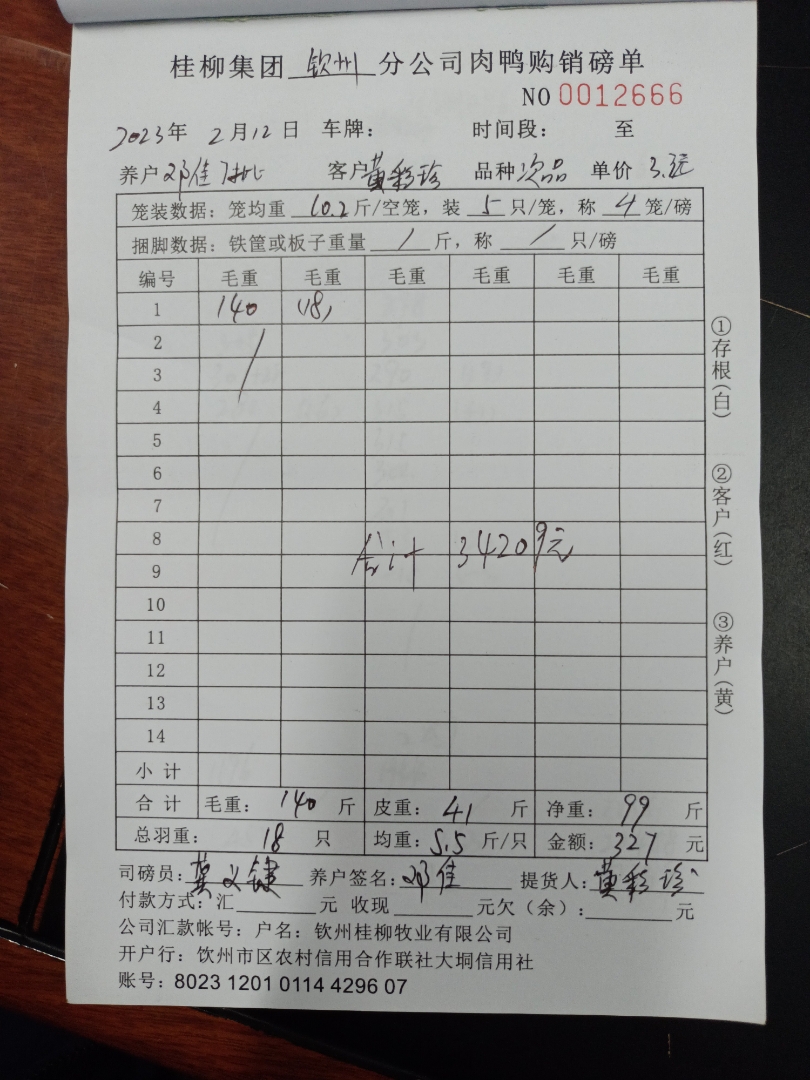 桂柳集团 钦州 分公司肉鸭购销磅单
NO 0012666
2023年 2月12日 车牌： 时间段： 至
养户 邓佳 客户 黄彩珍 品种 次品 单价 3.
笼装数据：笼均重 10.2 斤/空笼，装 5 只/笼，称 4 笼/磅
捆脚数据：铁筐或板子重量 / 斤，称 / 只/磅
编号 毛重 毛重 毛重 毛重 毛重 毛重
1 140 (18)
2
3
4
5
6
7
8
合计 34209元
9
10
11
12
13
14
小计
合计 毛重：140 斤 皮重：41 斤 净重：99 斤
总羽重：18 只 均重：5.5 斤/只 金额：327 元
司磅员： 养户签名：邓佳 提货人：黄彩珍
付款方式：汇 元 收现 元欠（余）： 元
公司汇款帐号：户名：钦州桂柳牧业有限公司
开户行：钦州市区农村信用合作联社大垌信用社
账号：8023 1201 0114 4296 07
①存根（白）
②客户（红）
③养户（黄）